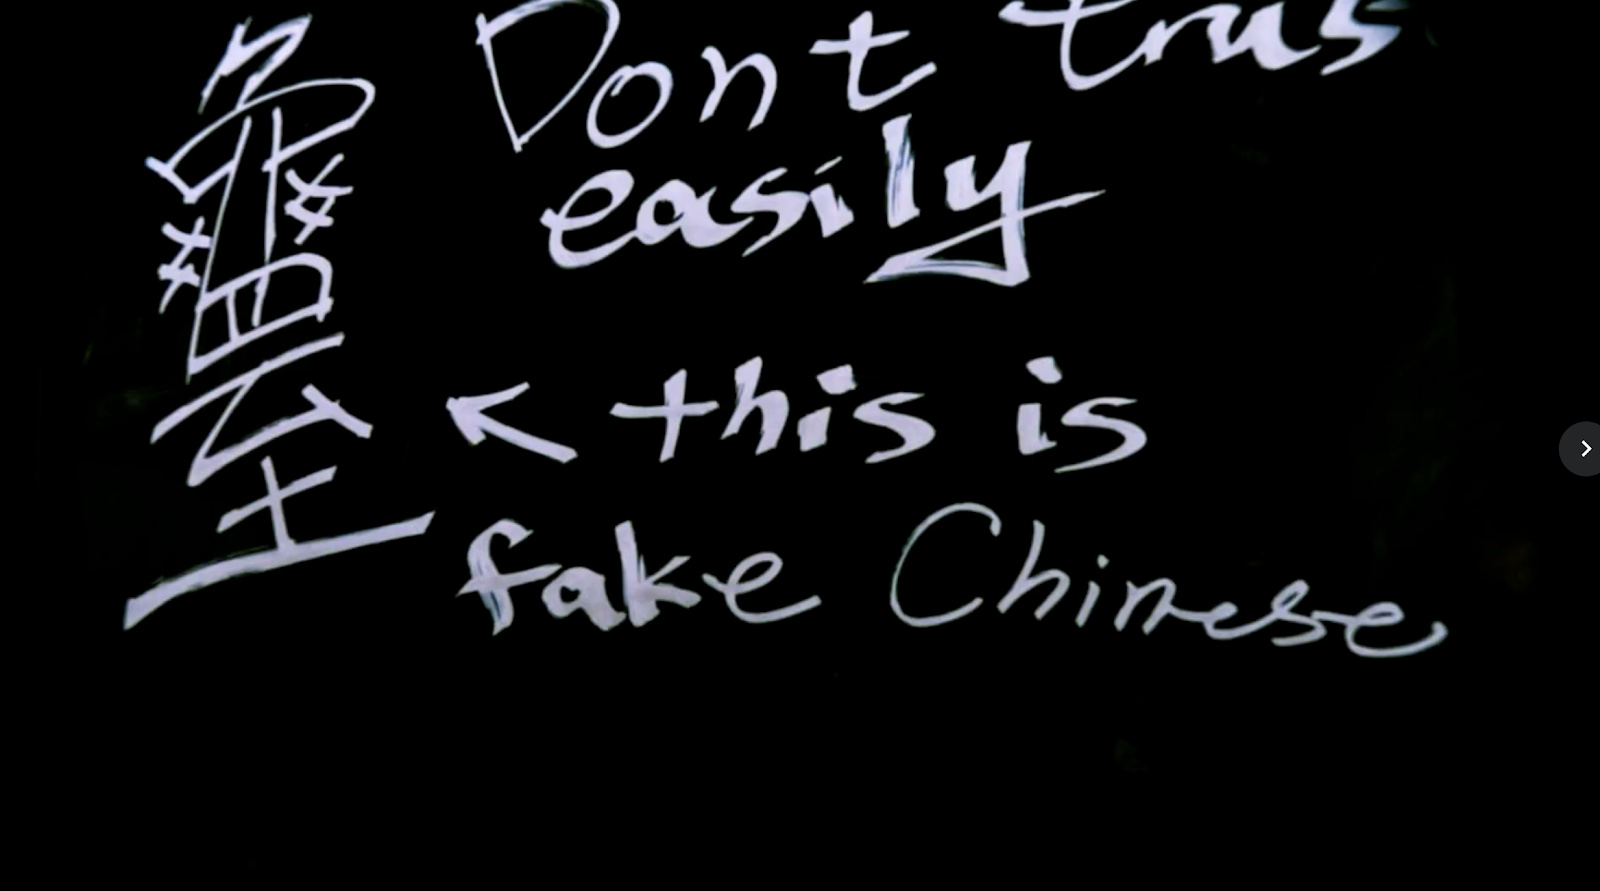 Don't trus
easily
← this is
fake Chinese